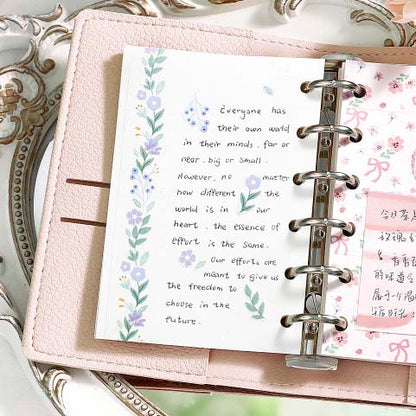 Everyone has
their own world
in their minds, far or
near, big or small.
However, no matter
how different the
world is in our
heart, the essence of
effort is the same.
Our efforts are
meant to give us
the freedom to
choose in the
future.
今日茶
玫瑰